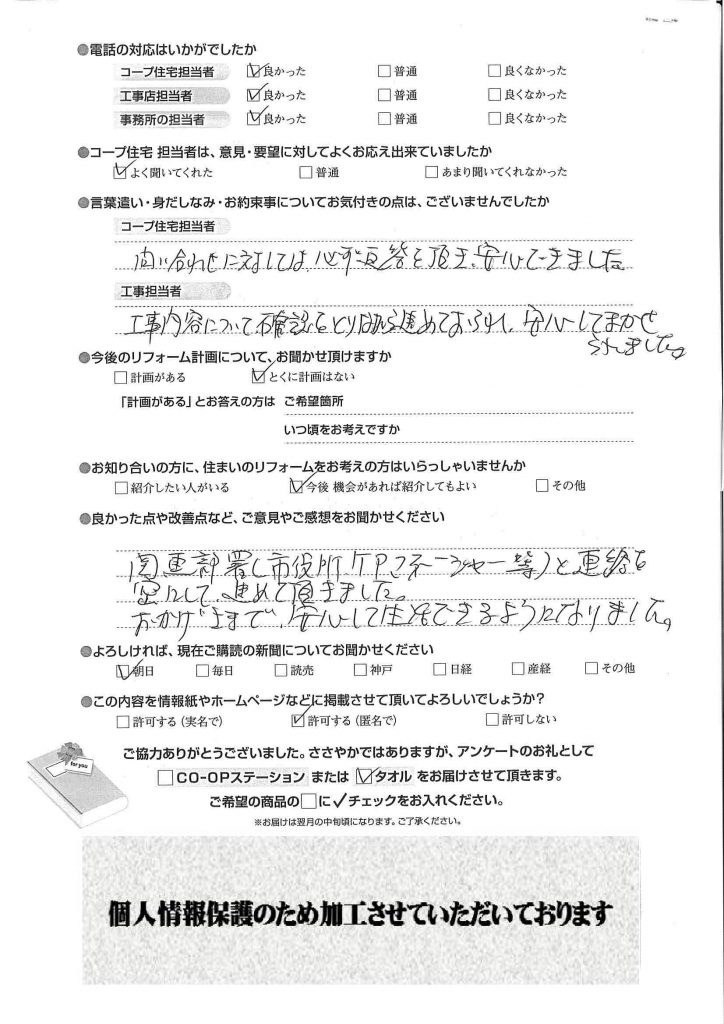 ●電話の対応はいかがでしたか
コープ住宅担当者 ☑良かった □普通 □良くなかった
工事店担当者 ☑良かった □普通 □良くなかった
事務所の担当者 ☑良かった □普通 □良くなかった
●コープ住宅 担当者は、意見・要望に対してよくお応え出来ていましたか
☑よく聞いてくれた □普通 □あまり聞いてくれなかった
●言葉遣い・身だしなみ・お約束事についてお気付きの点は、ございませんでしたか
コープ住宅担当者
問い合わせに対しては必ず返答を頂き、安心できました。
工事担当者
工事内容について確認をとりながら進めておられ、安心してまかせ
られました。
●今後のリフォーム計画について、お聞かせ頂けますか
□計画がある ☑とくに計画はない
「計画がある」とお答えの方は ご希望箇所
いつ頃をお考えですか
●お知り合いの方に、住まいのリフォームをお考えの方はいらっしゃいませんか
□紹介したい人がいる ☑今後 機会があれば紹介してもよい □その他
●良かった点や改善点など、ご意見やご感想をお聞かせください
関連部署(市役所 ケアマネージャー等)と連絡を
密にして、進めて頂きました。
おかげさまで、安心して生活できるようになりました。
●よろしければ、現在ご購読の新聞についてお聞かせください
☑朝日 □毎日 □読売 □神戸 □日経 □産経 □その他
●この内容を情報紙やホームページなどに掲載させて頂いてよろしいでしょうか?
□許可する(実名で) ☑許可する(匿名で) □許可しない
for you
ご協力ありがとうございました。ささやかではありますが、アンケートのお礼として
□CO-OPステーション または ☑タオル をお届けさせて頂きます。
ご希望の商品の□に✓チェックをお入れください。
※お届けは翌月の中旬頃になります。ご了承ください。
個人情報保護のため加工させていただいております